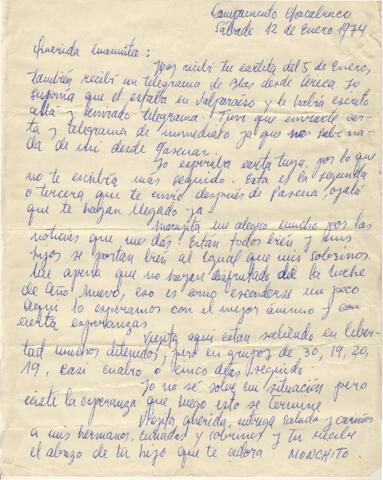 Campamento Chacabuco
Sábado 12 de Enero 1974
Querida mamita:
Hoy recibí tu cartita del 5 de Enero,
también recibí un telegrama de Blas desde Arica. Yo
suponía que él estaba en Valparaíso y le había escrito
allá y enviado telegrama. Tuve que enviarle car
ta y telegrama de inmediato ya que no sabe na
da de mí desde Pascua.
Yo esperaba carta tuya, por lo que
no te escribía más seguido. Esta es la segunda
o tercera que te envío después de Pascua, ojalá
que te hayan llegado ya
Mamita me alegro mucho por las
noticias que me das! Están todos bien, y mis
hijos se portan bien al igual que mis sobrinos.
Me apena que no hayan disfrutado de la noche
de Año Nuevo, eso es como esconderse un poco
Aquí lo esperamos con el mejor ánimo y con
cierta esperanzas
Viejita aquí están saliendo en liber
tad muchos detenidos, pero en grupos de 30, 19, 20,
19, casi cuatro o cinco días seguido
Yo no sé sobre mi situación pero
existe la esperanza que luego esto se termine
Viejita querida, entrega saludos y cariños
a mis hermanos, cuñadas y sobrinos y tú recibe
el abrazo de tu hijo que te adora MONCHITO.